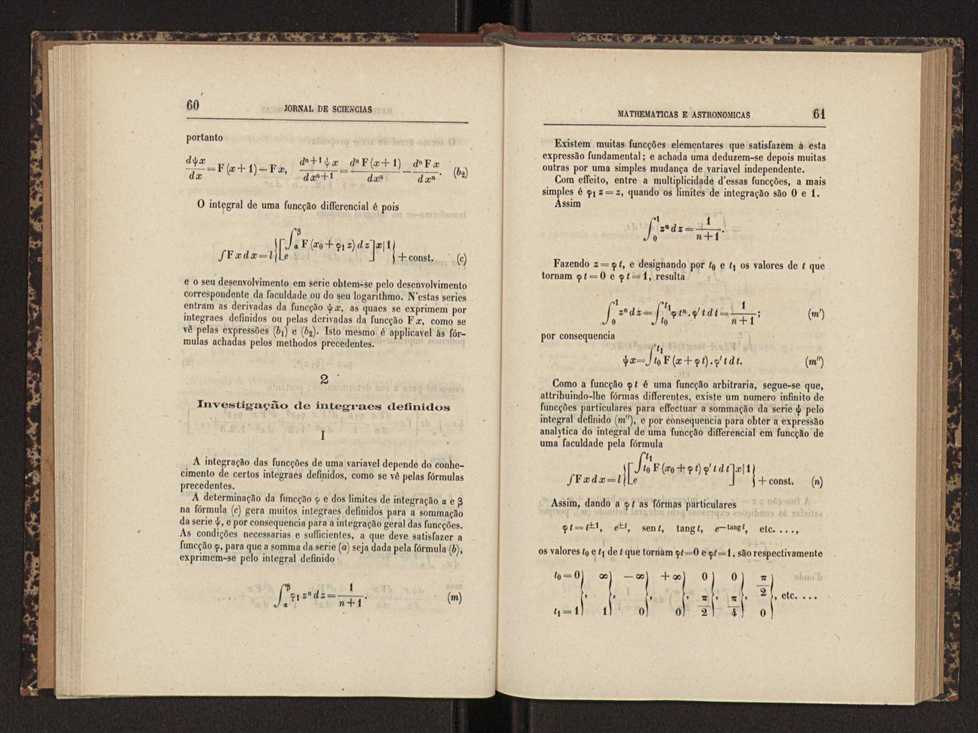 60 JORNAL DE SCIENCIAS
portanto
dψx/dx = F(x+1) − Fx, dⁿ⁺¹ψx/dxⁿ⁺¹ = dⁿF(x+1)/dxⁿ − dⁿFx/dxⁿ. (b₂)
O integral de uma funcção differencial é pois
∫Fxdx = l{[e^∫_α^β F(x₀+φ₁z)dz]x|1} + const. (c)
e o seu desenvolvimento em serie obtem-se pelo desenvolvimento
correspondente da faculdade ou do seu logarithmo. N'estas series
entram as derivadas da funcção ψx, as quaes se exprimem por
integraes definidos ou pelas derivadas da funcção Fx, como se
vê pelas expressões (b₁) e (b₂). Isto mesmo é applicavel ás fór-
mulas achadas pelos methodos precedentes.
2
Investigação de integraes definidos
I
A integração das funcções de uma variavel depende do conhe-
cimento de certos integraes definidos, como se vê pelas fórmulas
precedentes.
A determinação da funcção φ e dos limites de integração α e β
na fórmula (c) gera muitos integraes definidos para a sommação
da serie ψ, e por consequencia para a integração geral das funcções.
As condições necessarias e sufficientes, a que deve satisfazer a
funcção φ, para que a somma da serie (a) seja dada pela fórmula (b),
exprimem-se pelo integral definido
∫_α^β φ₁zⁿdz = 1/(n+1). (m)
MATHEMATICAS E ASTRONOMICAS 61
Existem muitas funcções elementares que satisfazem á esta
expressão fundamental; e achada uma deduzem-se depois muitas
outras por uma simples mudança de variavel independente.
Com effeito, entre a multiplicidade d'essas funcções, a mais
simples é φ₁z = z, quando os limites de integração são 0 e 1.
Assim
∫_0^1 zⁿdz = 1/(n+1).
Fazendo z = φt, e designando por t₀ e t₁ os valores de t que
tornam φt = 0 e φt = 1, resulta
∫_0^1 zⁿdz = ∫_t₀^t₁ φtⁿ.φ'tdt = 1/(n+1); (m')
por consequencia
ψx = ∫_t₀^t₁ F(x+φt).φ'tdt. (m'')
Como a funcção φt é uma funcção arbitraria, segue-se que,
attribuindo-lhe fórmas differentes, existe um numero infinito de
funcções particulares para effectuar a sommação da serie ψ pelo
integral definido (m''), e por consequencia para obter a expressão
analytica do integral de uma funcção differencial em funcção de
uma faculdade pela fórmula
∫Fxdx = l{[e^∫_t₀^t₁ F(x₀+φt)φ'tdt]x|1} + const. (n)
Assim, dando a φt as fórmas particulares
φt = t^±1, e^±t, sen t, tang t, e^−tang t, etc. ....,
os valores t₀ e t₁ de t que tornam φt=0 e φt=1, são respectivamente
t₀ = 0} ∞} −∞} +∞} 0} 0} π/2}
, , , , , , , etc. ....
t₁ = 1} 1} 0} 0} π/2} π/4} 0}